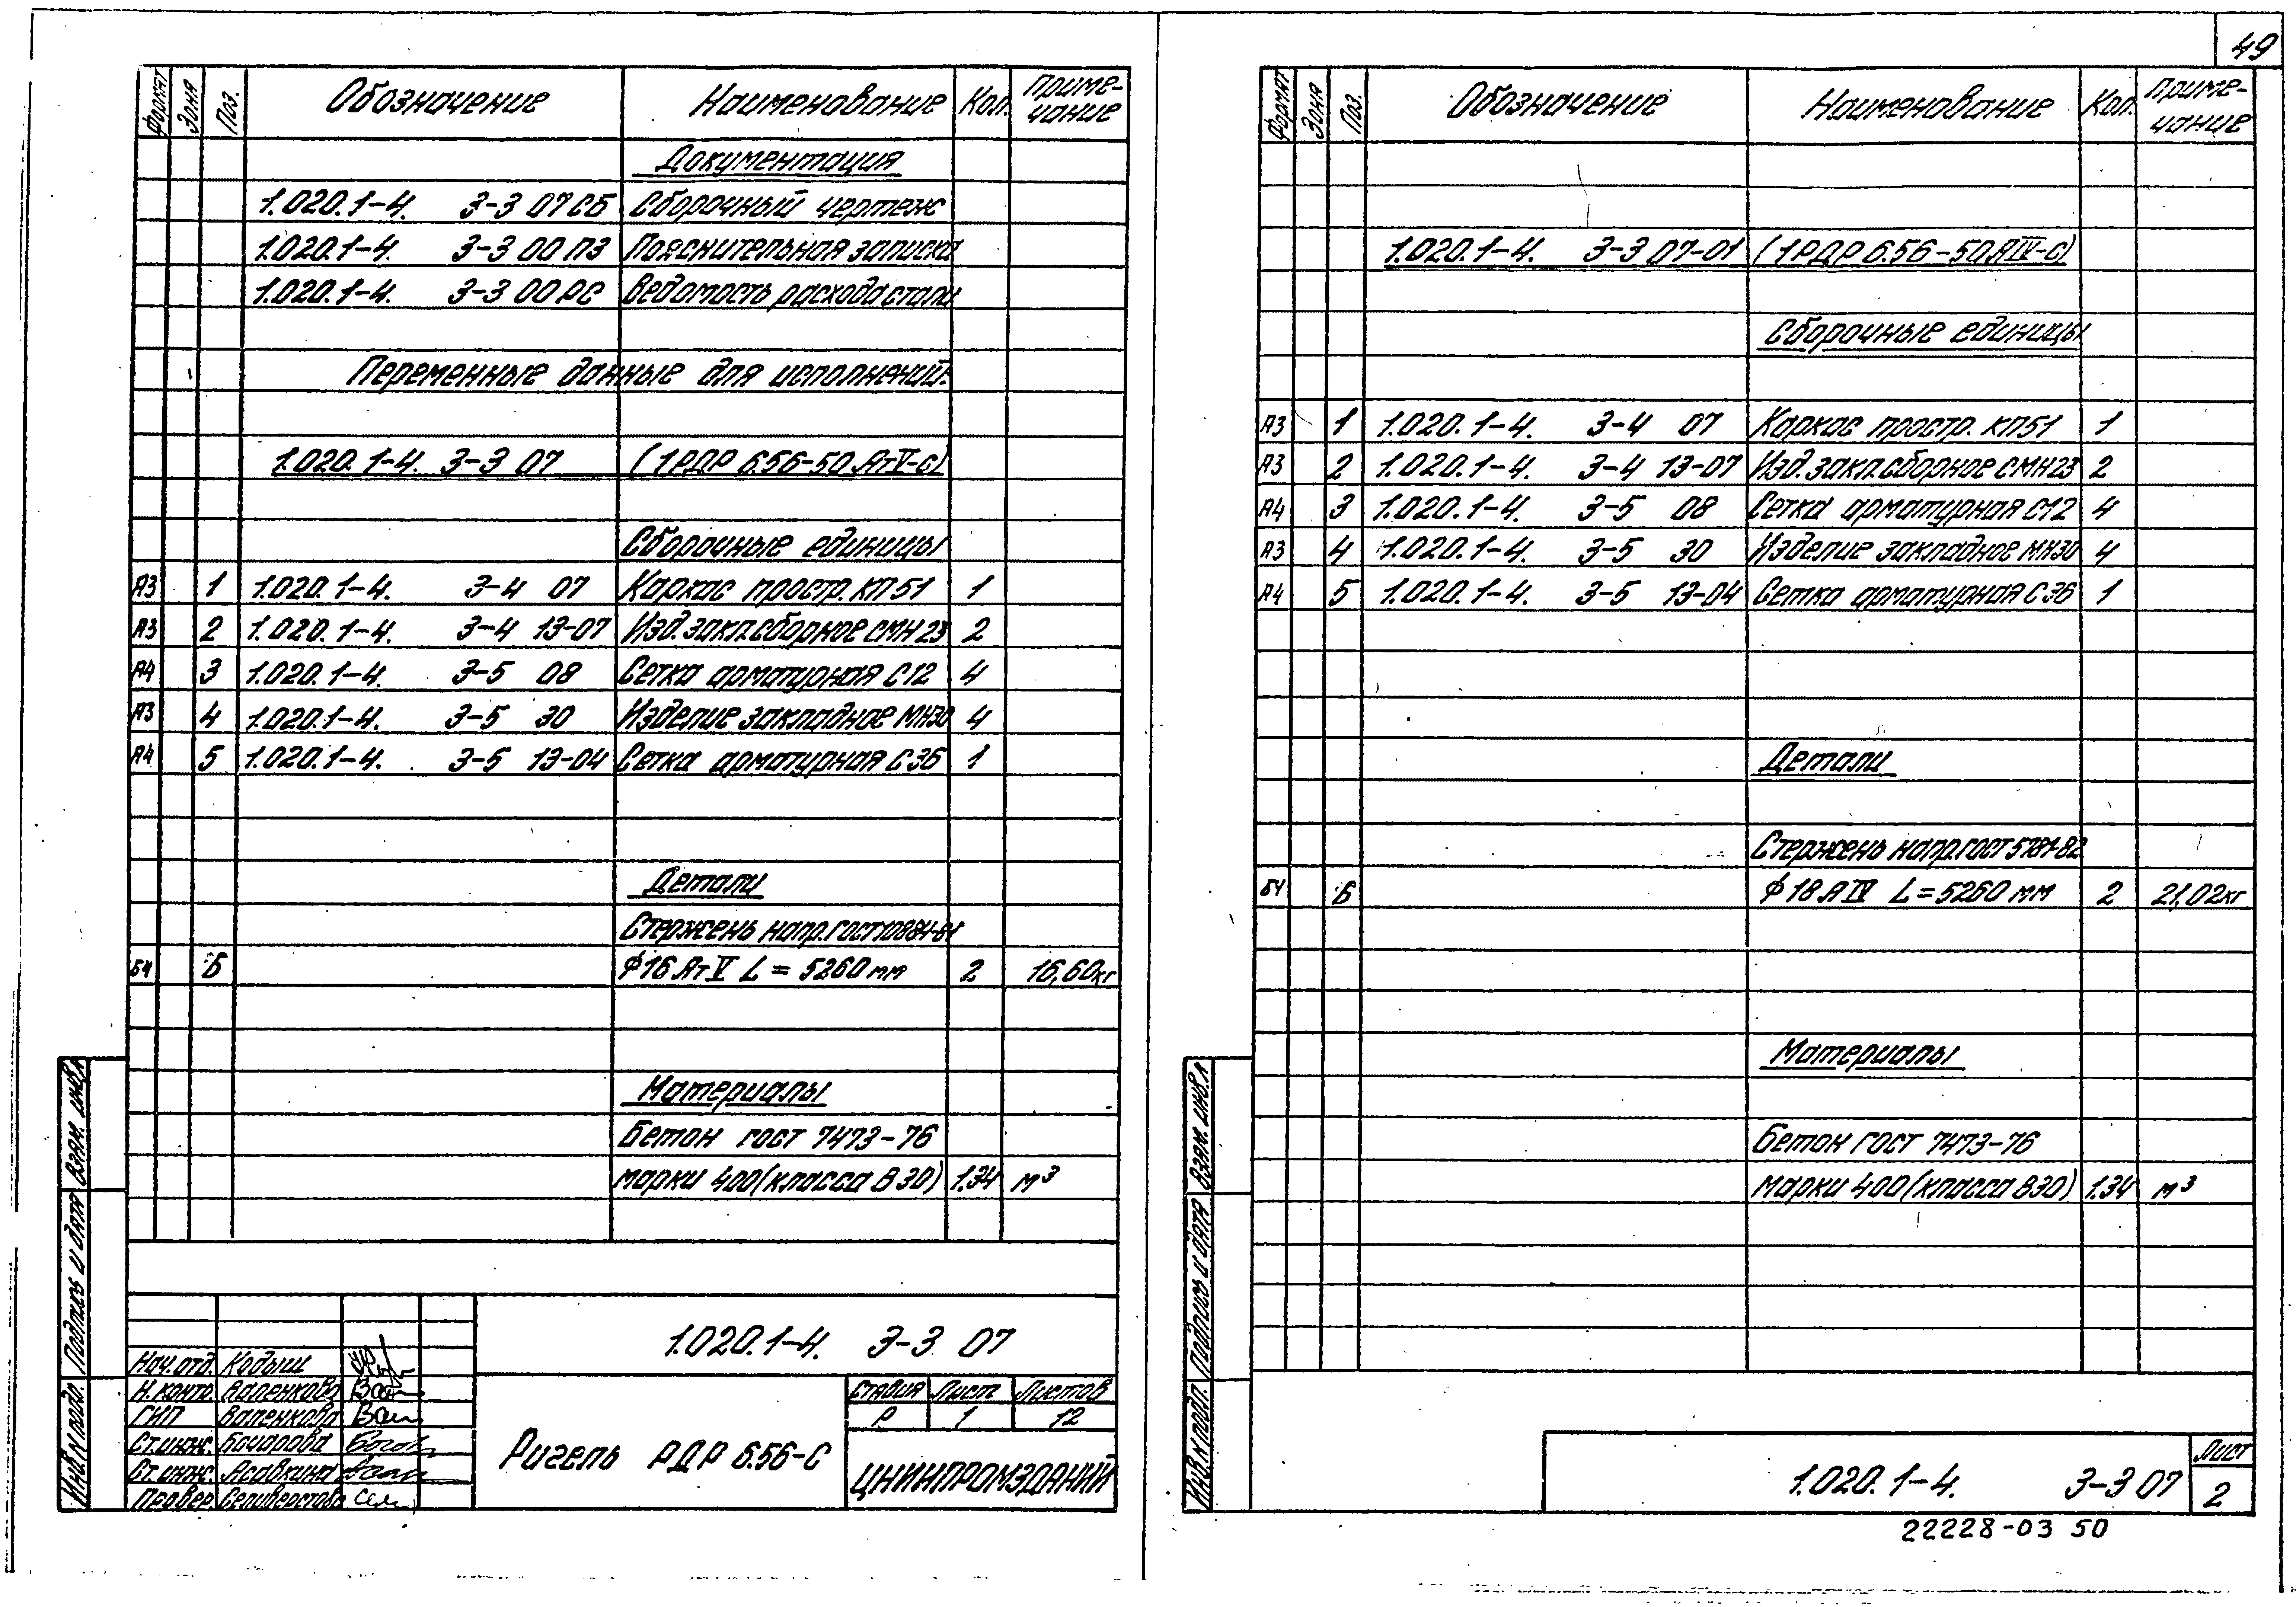 49
Формат Зона Поз. Обозначение Наименование Кол. Приме-
чание
Документация
1.020.1-4. 3-3 07 СБ Сборочный чертеж
1.020.1-4. 3-3 00 ПЗ Пояснительная записка
1.020.1-4. 3-3 00 РС Ведомость расхода стали
Переменные данные для исполнений:
1.020.1-4. 3-3 07 (1РДР 6.56-50 АтV-С)
Сборочные единицы
А3 1 1.020.1-4. 3-4 07 Каркас простр. КП51 1
А3 2 1.020.1-4. 3-4 13-07 Изд. закл. сборное СМН 23 2
А4 3 1.020.1-4. 3-5 08 Сетка арматурная С12 4
А3 4 1.020.1-4. 3-5 30 Изделие закладное МН30 4
А4 5 1.020.1-4. 3-5 13-04 Сетка арматурная С36 1
Детали
Стержень напр. ГОСТ 10884-81
БЧ 6 ф16 АтV L = 5260 мм 2 16,60кг
Материалы
Бетон ГОСТ 7473-76
марки 400 (класса В30) 1.34 м³
Взам. инв. №
Подпись и дата
Инв. № подл.
1.020.1-4. 3-3 07
Нач. отд. Кодыш
Н. контр. Валенкова
ГИП Валенкова
Ст. инж. Бочарова
Ст. инж. Асавкина
Провер. Селиверстова
Ригель РДР 6.56-С
Стадия Лист Листов
Р 1 12
ЦНИИПРОМЗДАНИЙ
Формат Зона Поз. Обозначение Наименование Кол. Приме-
чание
1.020.1-4. 3-3 07-01 (1РДР 6.56-50 АIV-С)
Сборочные единицы
А3 1 1.020.1-4. 3-4 07 Каркас простр. КП51 1
А3 2 1.020.1-4. 3-4 13-07 Изд. закл. сборное СМН 23 2
А4 3 1.020.1-4. 3-5 08 Сетка арматурная С12 4
А3 4 1.020.1-4. 3-5 30 Изделие закладное МН30 4
А4 5 1.020.1-4. 3-5 13-04 Сетка арматурная С36 1
Детали
Стержень напр. ГОСТ 5781-82
БЧ 6 ф18 АIV L = 5260 мм 2 21,02кг
Материалы
Бетон ГОСТ 7473-76
марки 400 (класса В30) 1.34 м³
Взам. инв. №
Подпись и дата
Инв. № подл.
1.020.1-4. 3-3 07
Лист
2
22228-03 50